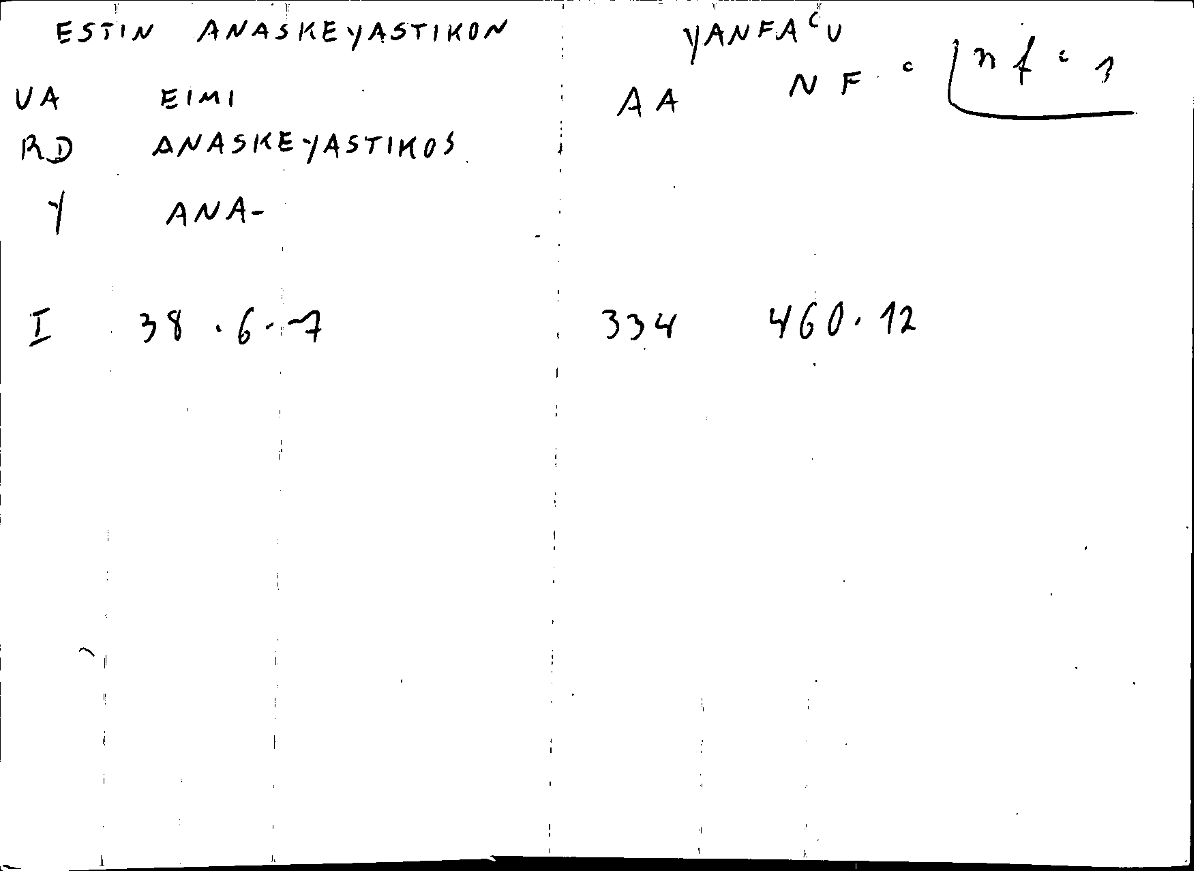 ESTIN ANASKEYASTIKON YANFAᶜU
VA EIMI AA NF ᶜ nf ᶜ
RD ANASKEYASTIKOS
Y ANA-
I 38.6.-7 334 460.12